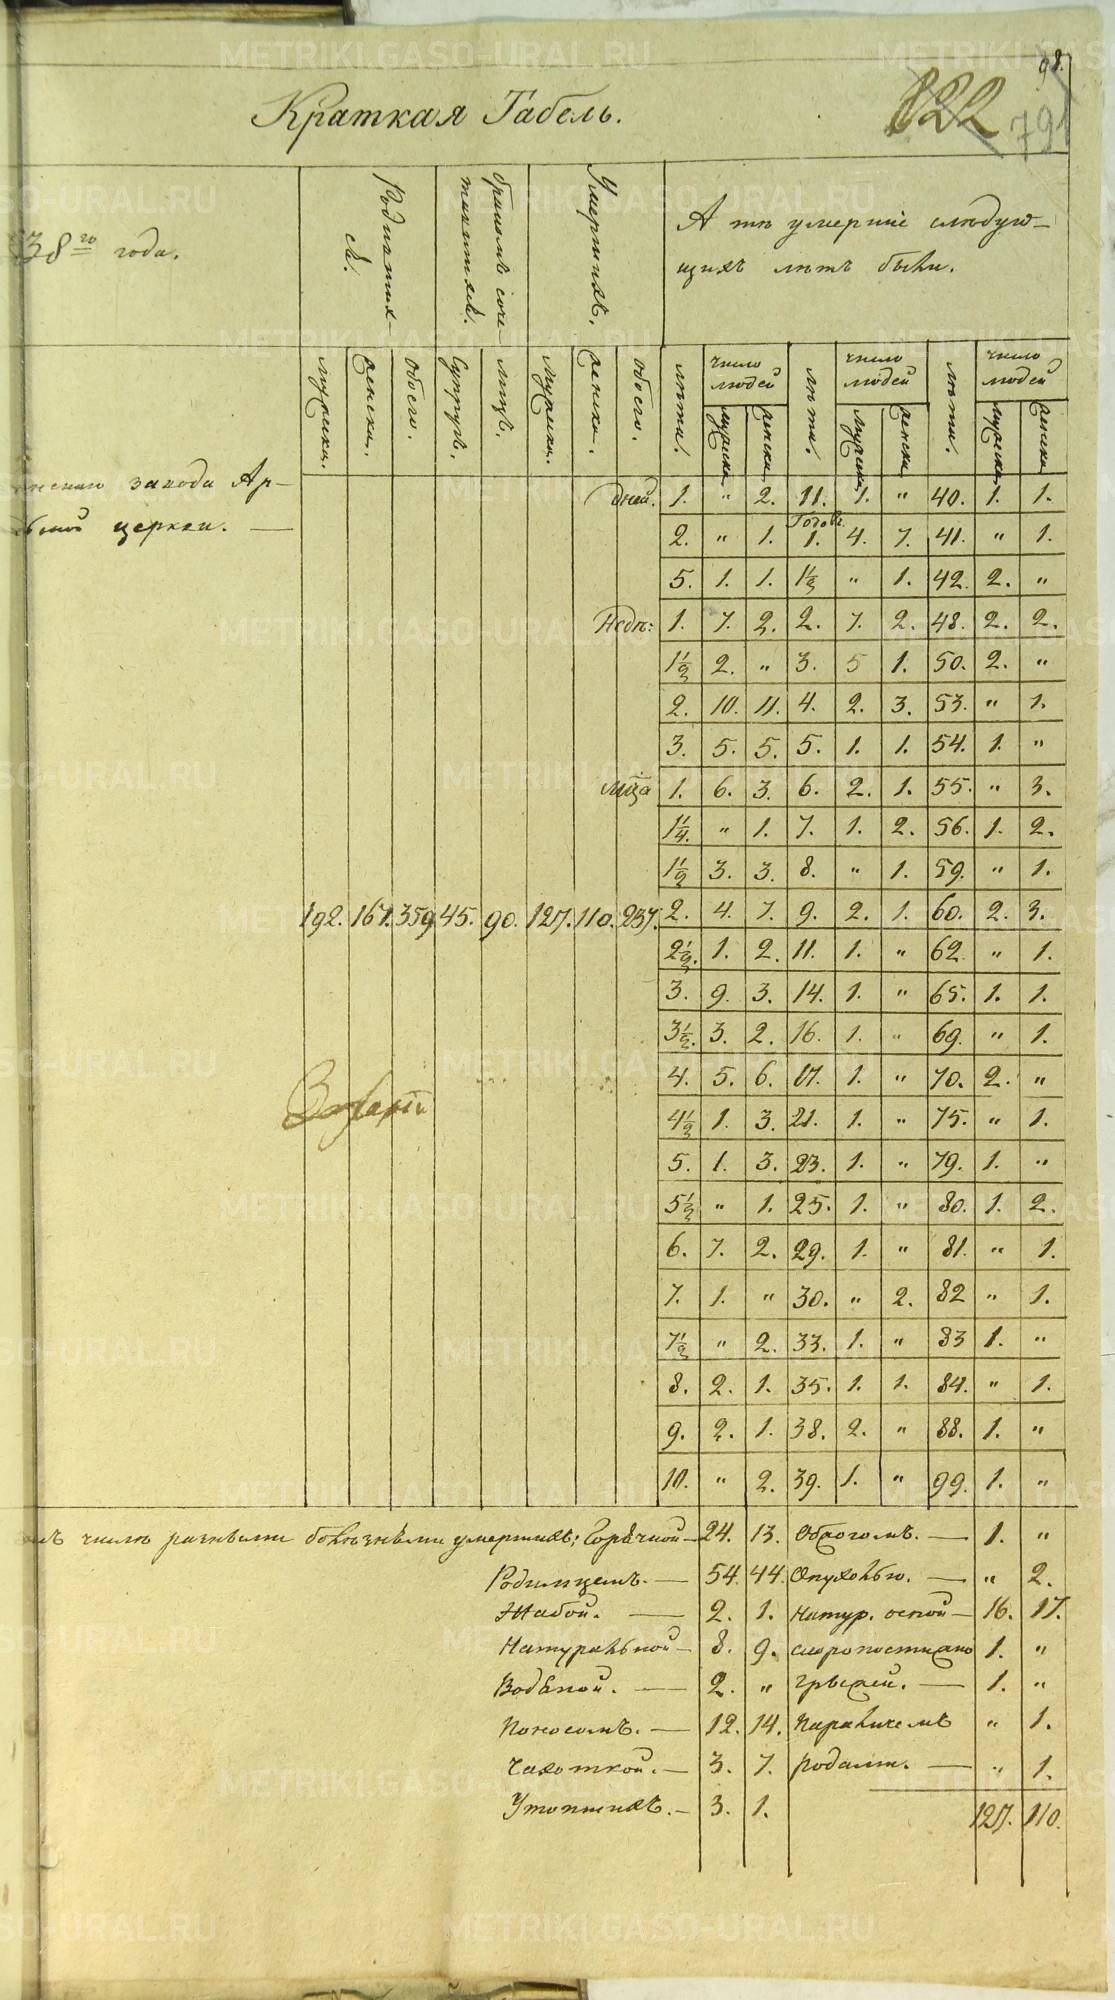 98.
Краткая Табель.
822
791
38го года.
Родивших-
ся.
браком соче-
тавшихся.
Умерших.
А те умершие следую-
щих лет были.
мужска.
женска.
обоего.
супруж.
лиц.
мужска.
женска.
обоего.
лета.
число людей
мужска
женска
лета.
число людей
мужска
женска
лета.
число людей
мужска
женска
завода Ар-
ной церкви. —
Дней. 1. " 2. 11. 1. " 40. 1. 1.
2. " 1. Годов 1. 4. 7. 41. " 1.
5. 1. 1. 1½ " 1. 42. 2. "
Недѣ: 1. 7. 2. 2. 7. 2. 48. 2. 2.
1½ 2. " 3. 5 1. 50. 2. "
2. 10. 11. 4. 2. 3. 53. " 1.
3. 5. 5. 5. 1. 1. 54. 1. "
мца 1. 6. 3. 6. 2. 1. 55. " 3.
1¼. " 1. 7. 1. 2. 56. 1. 2.
1½ 3. 3. 8. " 1. 59. " 1.
192. 167. 359 45. 90. 127. 110. 237. 2. 4. 7. 9. 2. 1. 60. 2. 3.
2½. 1. 2. 11. 1. " 62. " 1.
3. 9. 3. 14. 1. " 65. 1. 1.
3½. 3. 2. 16. 1. " 69. " 1.
4. 5. 6. 17. 1. " 70. 2. "
4½ 1. 3. 21. 1. " 75. " 1.
5. 1. 3. 23. 1. " 79. 1. "
5½ " 1. 25. 1. " 80. 1. 2.
6. 7. 2. 29. 1. " 81. " 1.
7. 1. " 30. " 2. 82 " 1.
7½ " 2. 33. 1. " 83 1. "
8. 2. 1. 35. 1. 1. 84. " 1.
9. 2. 1. 38. 2. " 88. 1. "
10. " 2. 39. 1. " 99. 1. "
числѣ разными болѣзнями умерших: Горячкой — 24. 13. — 1. "
Родимцемъ. — 54. 44. Опухолью. — " 2.
Жабой. — 2. 1. Натур. оспой — 16. 17.
Натуральной — 8. 9. скоропостижно 1. "
Водяной. — 2. " грыжей. — 1. "
Поносомъ. — 12. 14. Параличемъ " 1.
Чахоткой. — 3. 7. родами. — " 1.
Утопших. — 3. 1.
127. 110.
METRIKI.GASO-URAL.RU